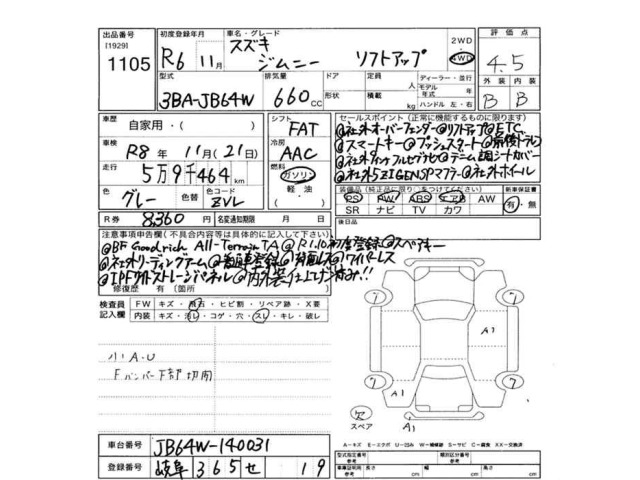 出品番号 [1929] 1105
初度登録年月 R6 11月
車名・グレード スズキ ジムニー リフトアップ
2WD 4WD
評価点 4.5
型式 3BA-JB64W
排気量 660 CC
ドア 形状
定員 人
積載 kg
ディーラー・並行
モデル年式 年
ハンドル 左・右
外装 内装
B B
車歴 自家用・( )
車検 R8年 11月(21日)
走行 5万9千464km
色 グレー
色替
色コード ZVL
シフト FAT
冷房 AAC
燃料 ガソリン
軽油
R券 8,360円 名変通知期限 月 日
セールスポイント(正常に機能するものに限ります)
@社外オーバーフェンダー@リフトアップ@ETC
@スマートキー@プッシュスタート@前後ドラレコ
@社外ナビフルセグ@デニム調シートカバー
@社外5ZIGENSPマフラー@社外ホイール
装備品(純正品に限り○をつけてください)
PS PW ABS エアB AW
SR ナビ TV カワ
新車保証書 有・無
後日品
注意事項申告欄(不具合内容等は具体的に記入して下さい)
@BF Goodrich All-Terrain TA@R1.10初度登録@スペアキー
@社外リーディングアーム@
@IPF @内外装仕上げ済み!!
修復歴 有 〔箇所 〕
検査員記入欄
FW キズ・飛石・ヒビ割・リペア跡・X要
内装 キズ・汚レ・コゲ・穴・スレ・キレ・破レ
小A.U
Fバンパー下部切削
A1
A1
7
7
7
7
欠
スペア
A1
A=キズ E=エクボ U=凹み W=補修跡 S=サビ C=腐食 XX=交換済
車台番号 JB64W-140031
登録番号 岐阜 365 せ 19
型式指定番号 参考
類別区分番号 参考
車車証明用 参考 長さ cm 幅 cm 高さ cm